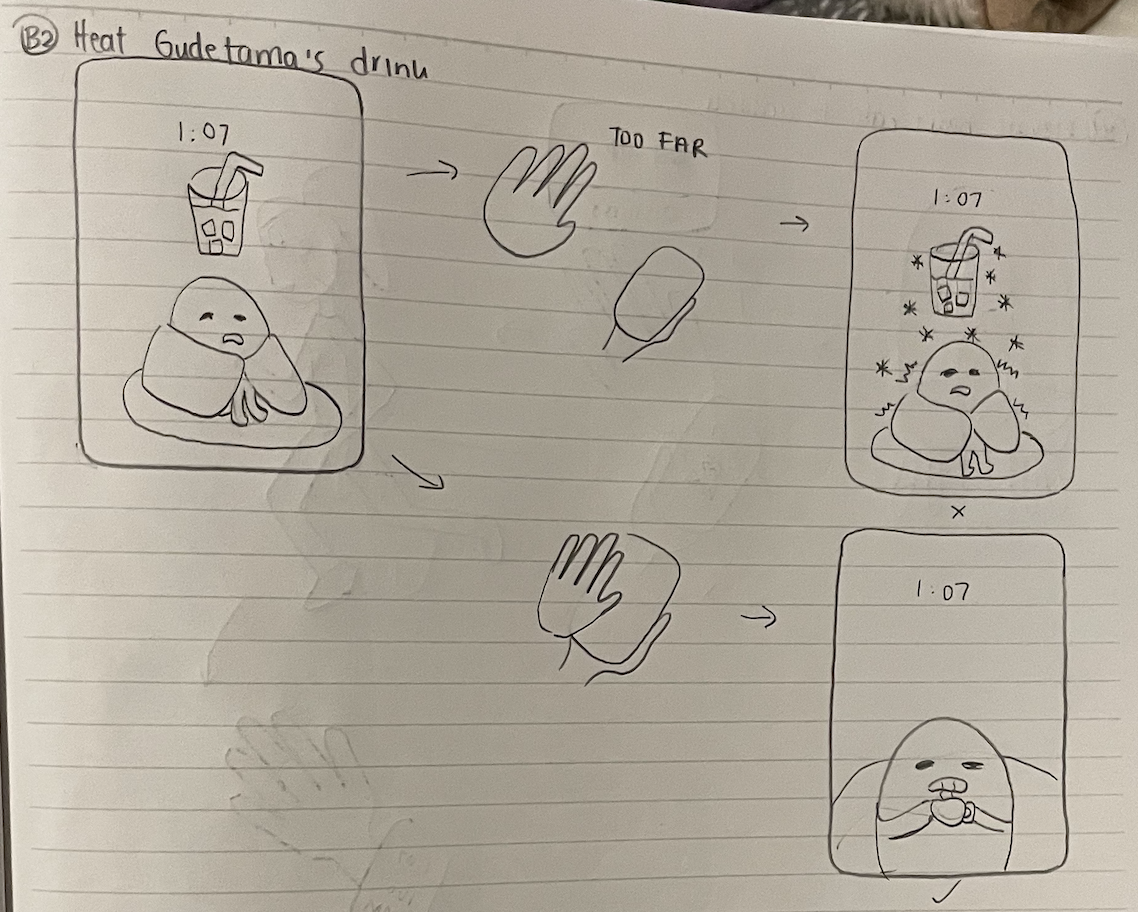 B2 Heat Gudetama's drink
1:07
TOO FAR
1:07
x
1:07
✓